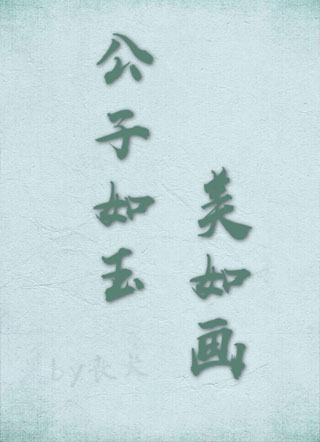 公子如玉
美如画
by